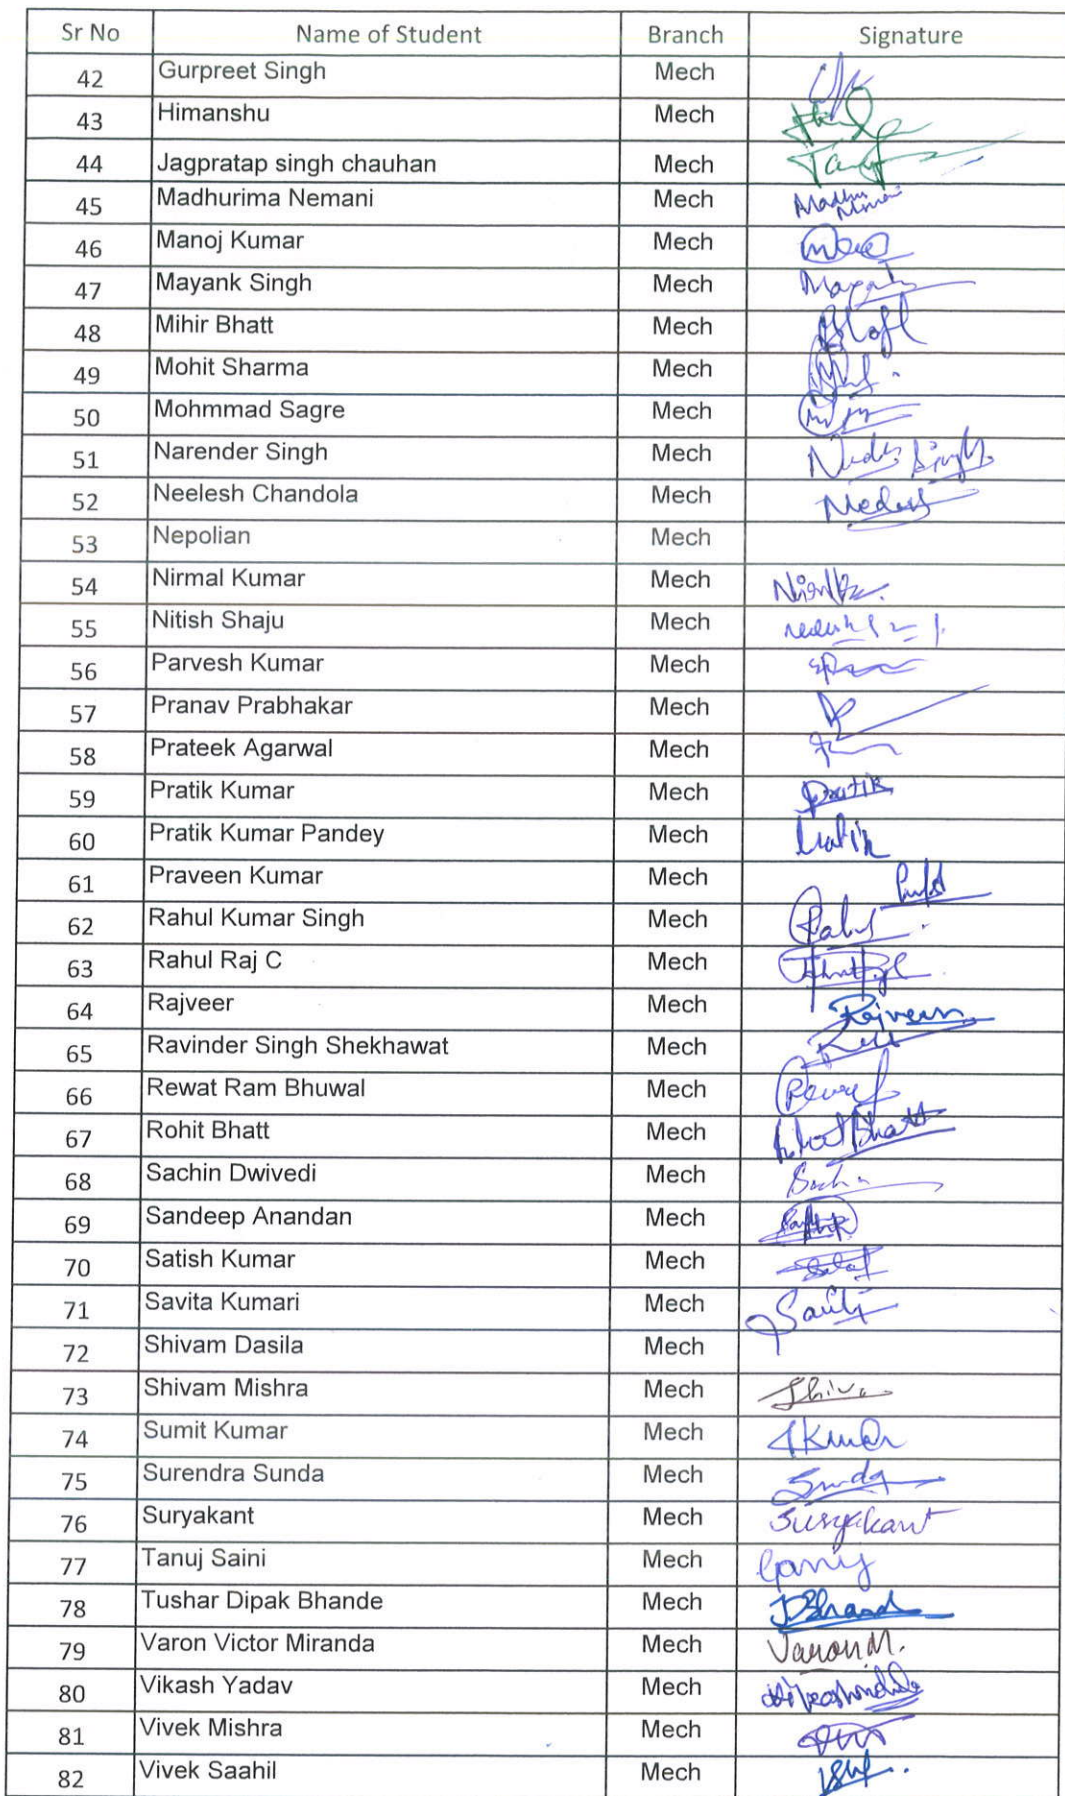 Sr No Name of Student Branch Signature
42 Gurpreet Singh Mech
43 Himanshu Mech
44 Jagpratap singh chauhan Mech
45 Madhurima Nemani Mech
46 Manoj Kumar Mech
47 Mayank Singh Mech
48 Mihir Bhatt Mech
49 Mohit Sharma Mech
50 Mohmmad Sagre Mech
51 Narender Singh Mech Singh
52 Neelesh Chandola Mech
53 Nepolian Mech
54 Nirmal Kumar Mech
55 Nitish Shaju Mech
56 Parvesh Kumar Mech
57 Pranav Prabhakar Mech
58 Prateek Agarwal Mech
59 Pratik Kumar Mech Pratik
60 Pratik Kumar Pandey Mech
61 Praveen Kumar Mech
62 Rahul Kumar Singh Mech
63 Rahul Raj C Mech
64 Rajveer Mech Rajveer
65 Ravinder Singh Shekhawat Mech
66 Rewat Ram Bhuwal Mech
67 Rohit Bhatt Mech Bhatt
68 Sachin Dwivedi Mech
69 Sandeep Anandan Mech
70 Satish Kumar Mech
71 Savita Kumari Mech
72 Shivam Dasila Mech
73 Shivam Mishra Mech
74 Sumit Kumar Mech
75 Surendra Sunda Mech Sunda
76 Suryakant Mech Suryakant
77 Tanuj Saini Mech
78 Tushar Dipak Bhande Mech
79 Varon Victor Miranda Mech Varon M.
80 Vikash Yadav Mech
81 Vivek Mishra Mech
82 Vivek Saahil Mech